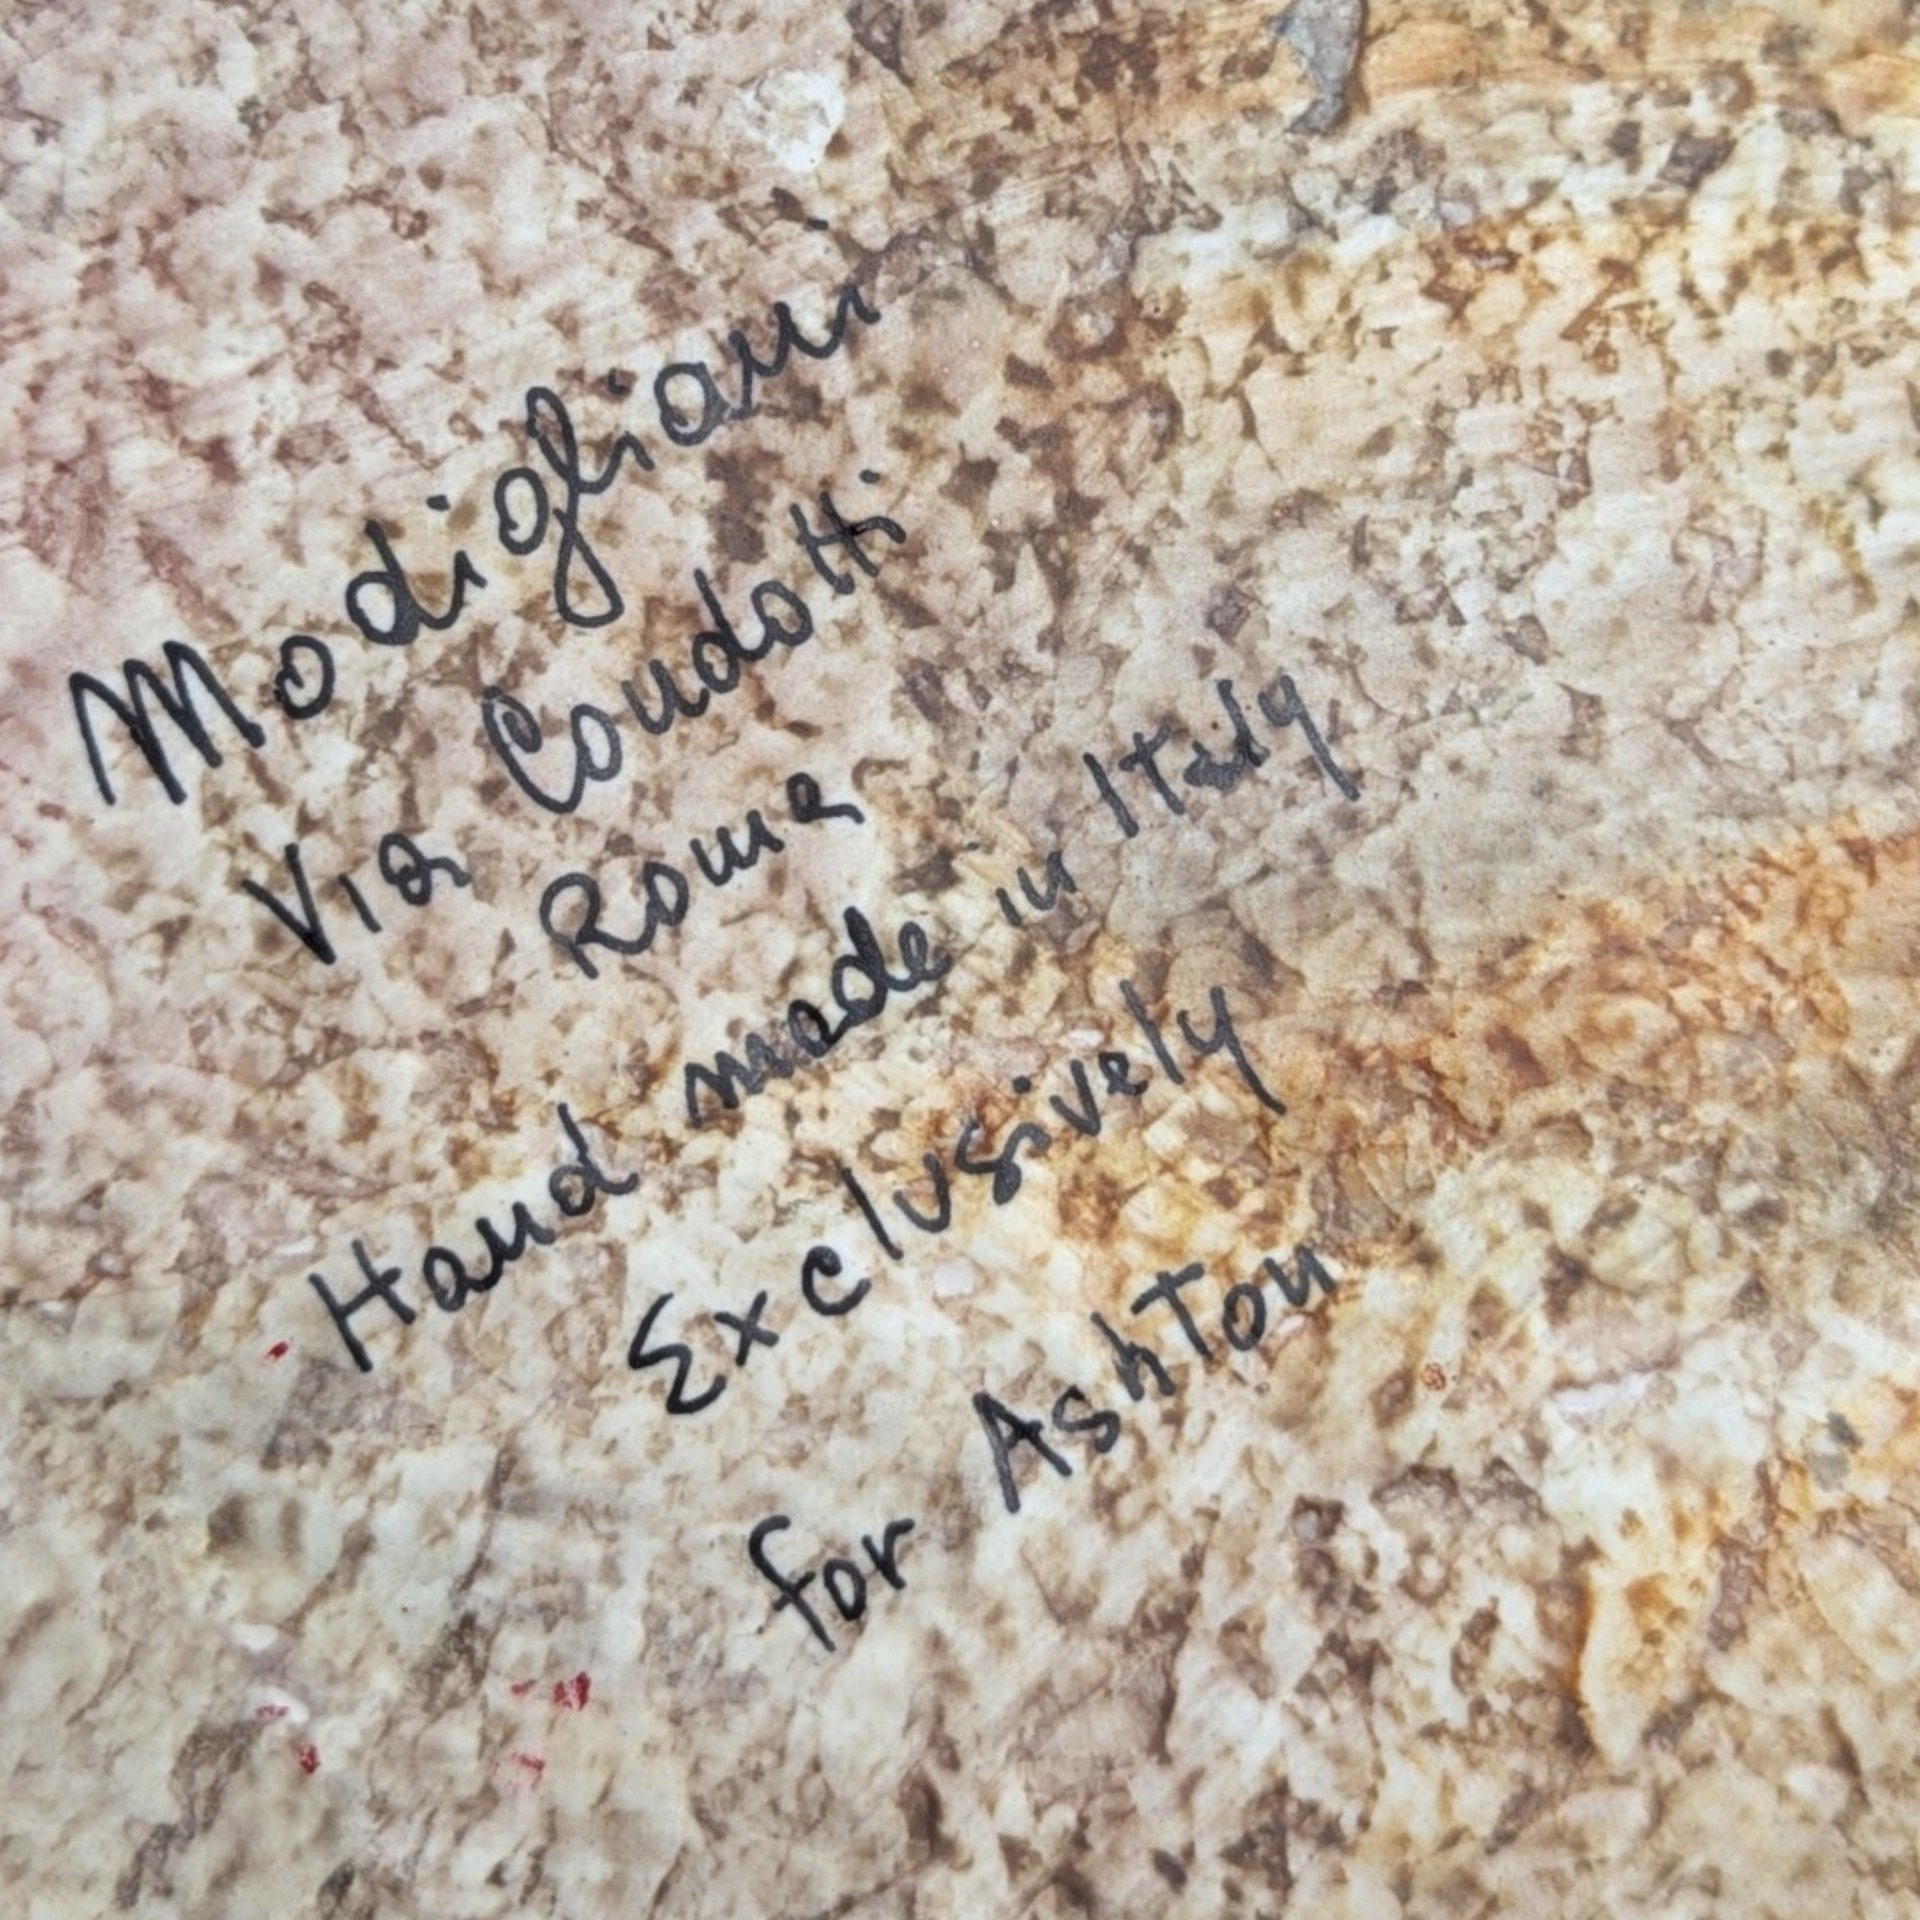 Modigliani
Via Condotti
Roma
Hand made in Italy
Exclusively
for Ashton